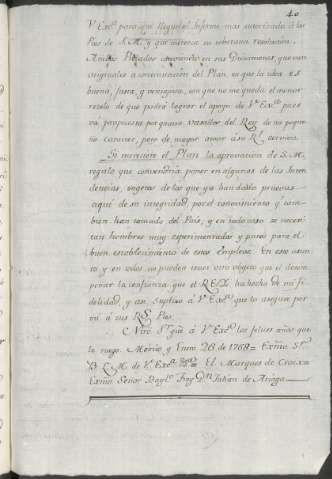 40
V. Exª. para qᵉ llegue el Informe mas autorizado à los
Pies de S. M. y que merezca su soberana resolucion.
Ambos Prelados apoyando en sus Documentos, que van
originales a continuacion del Plan, es que la idea es
buena, justa, y ventajosa, con que no me queda el menor
rezelo de que podrá lograr el apoyo de V. Exª. pues
và propuesta por quatro vasallos del Rey de no peque
ño caracter, pero de mayor amor à su Rˡ. servicio.
Si mereciere el Plan la aprovacion de S. M.
regulo que convendria poner en algunas de las Inten
dencias, sugetos de los que ya han dado pruebas
aqui de su integridad por el conocimiento qᵉ tam
bien han tomado del Pais, y en todo caso se necesi
tan hombres muy experimentados y puros para el
buen establecimiento de estos Empleos. En este asun
to y en todos no pueden tener otro objeto que el desem
peñar la confianza que el REY ha hecho de mi fi
delidad, y asi suplico à V. Exª. que lo asegure por
mi à sus Rˢ. Pies.
Ntro Sʳ. gue à V. Exª. los felices años que
le ruego. Mexico y Enero 26 de 1768 = Exmo Sʳ.
B. L. M. de V. Exª. = El Marques de Croix =
Exmo Señor Baylᵒ. Frey Dⁿ. Julian de Arriaga